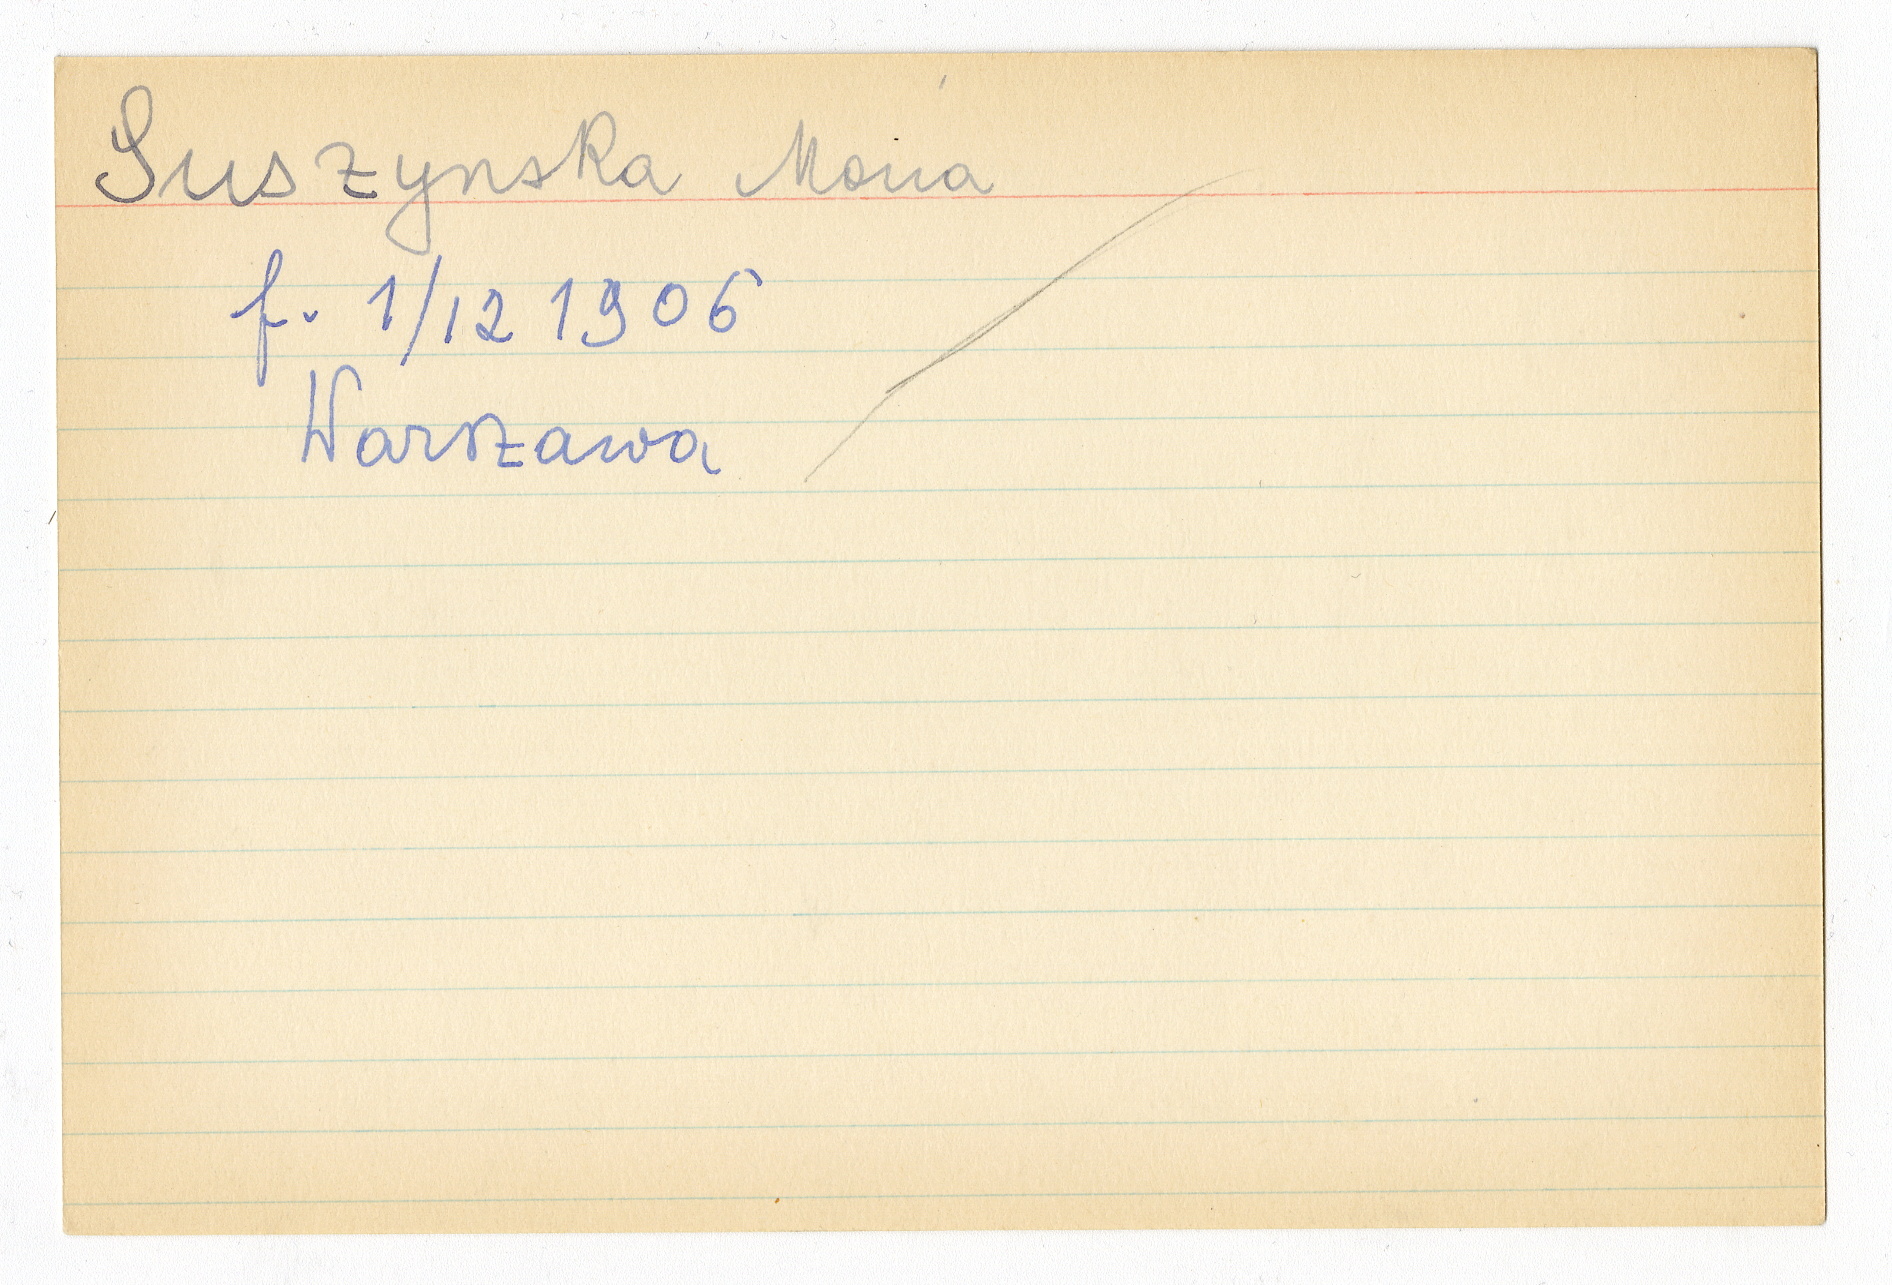 Suszynska Maria
f. 1/12 1906
Warszawa